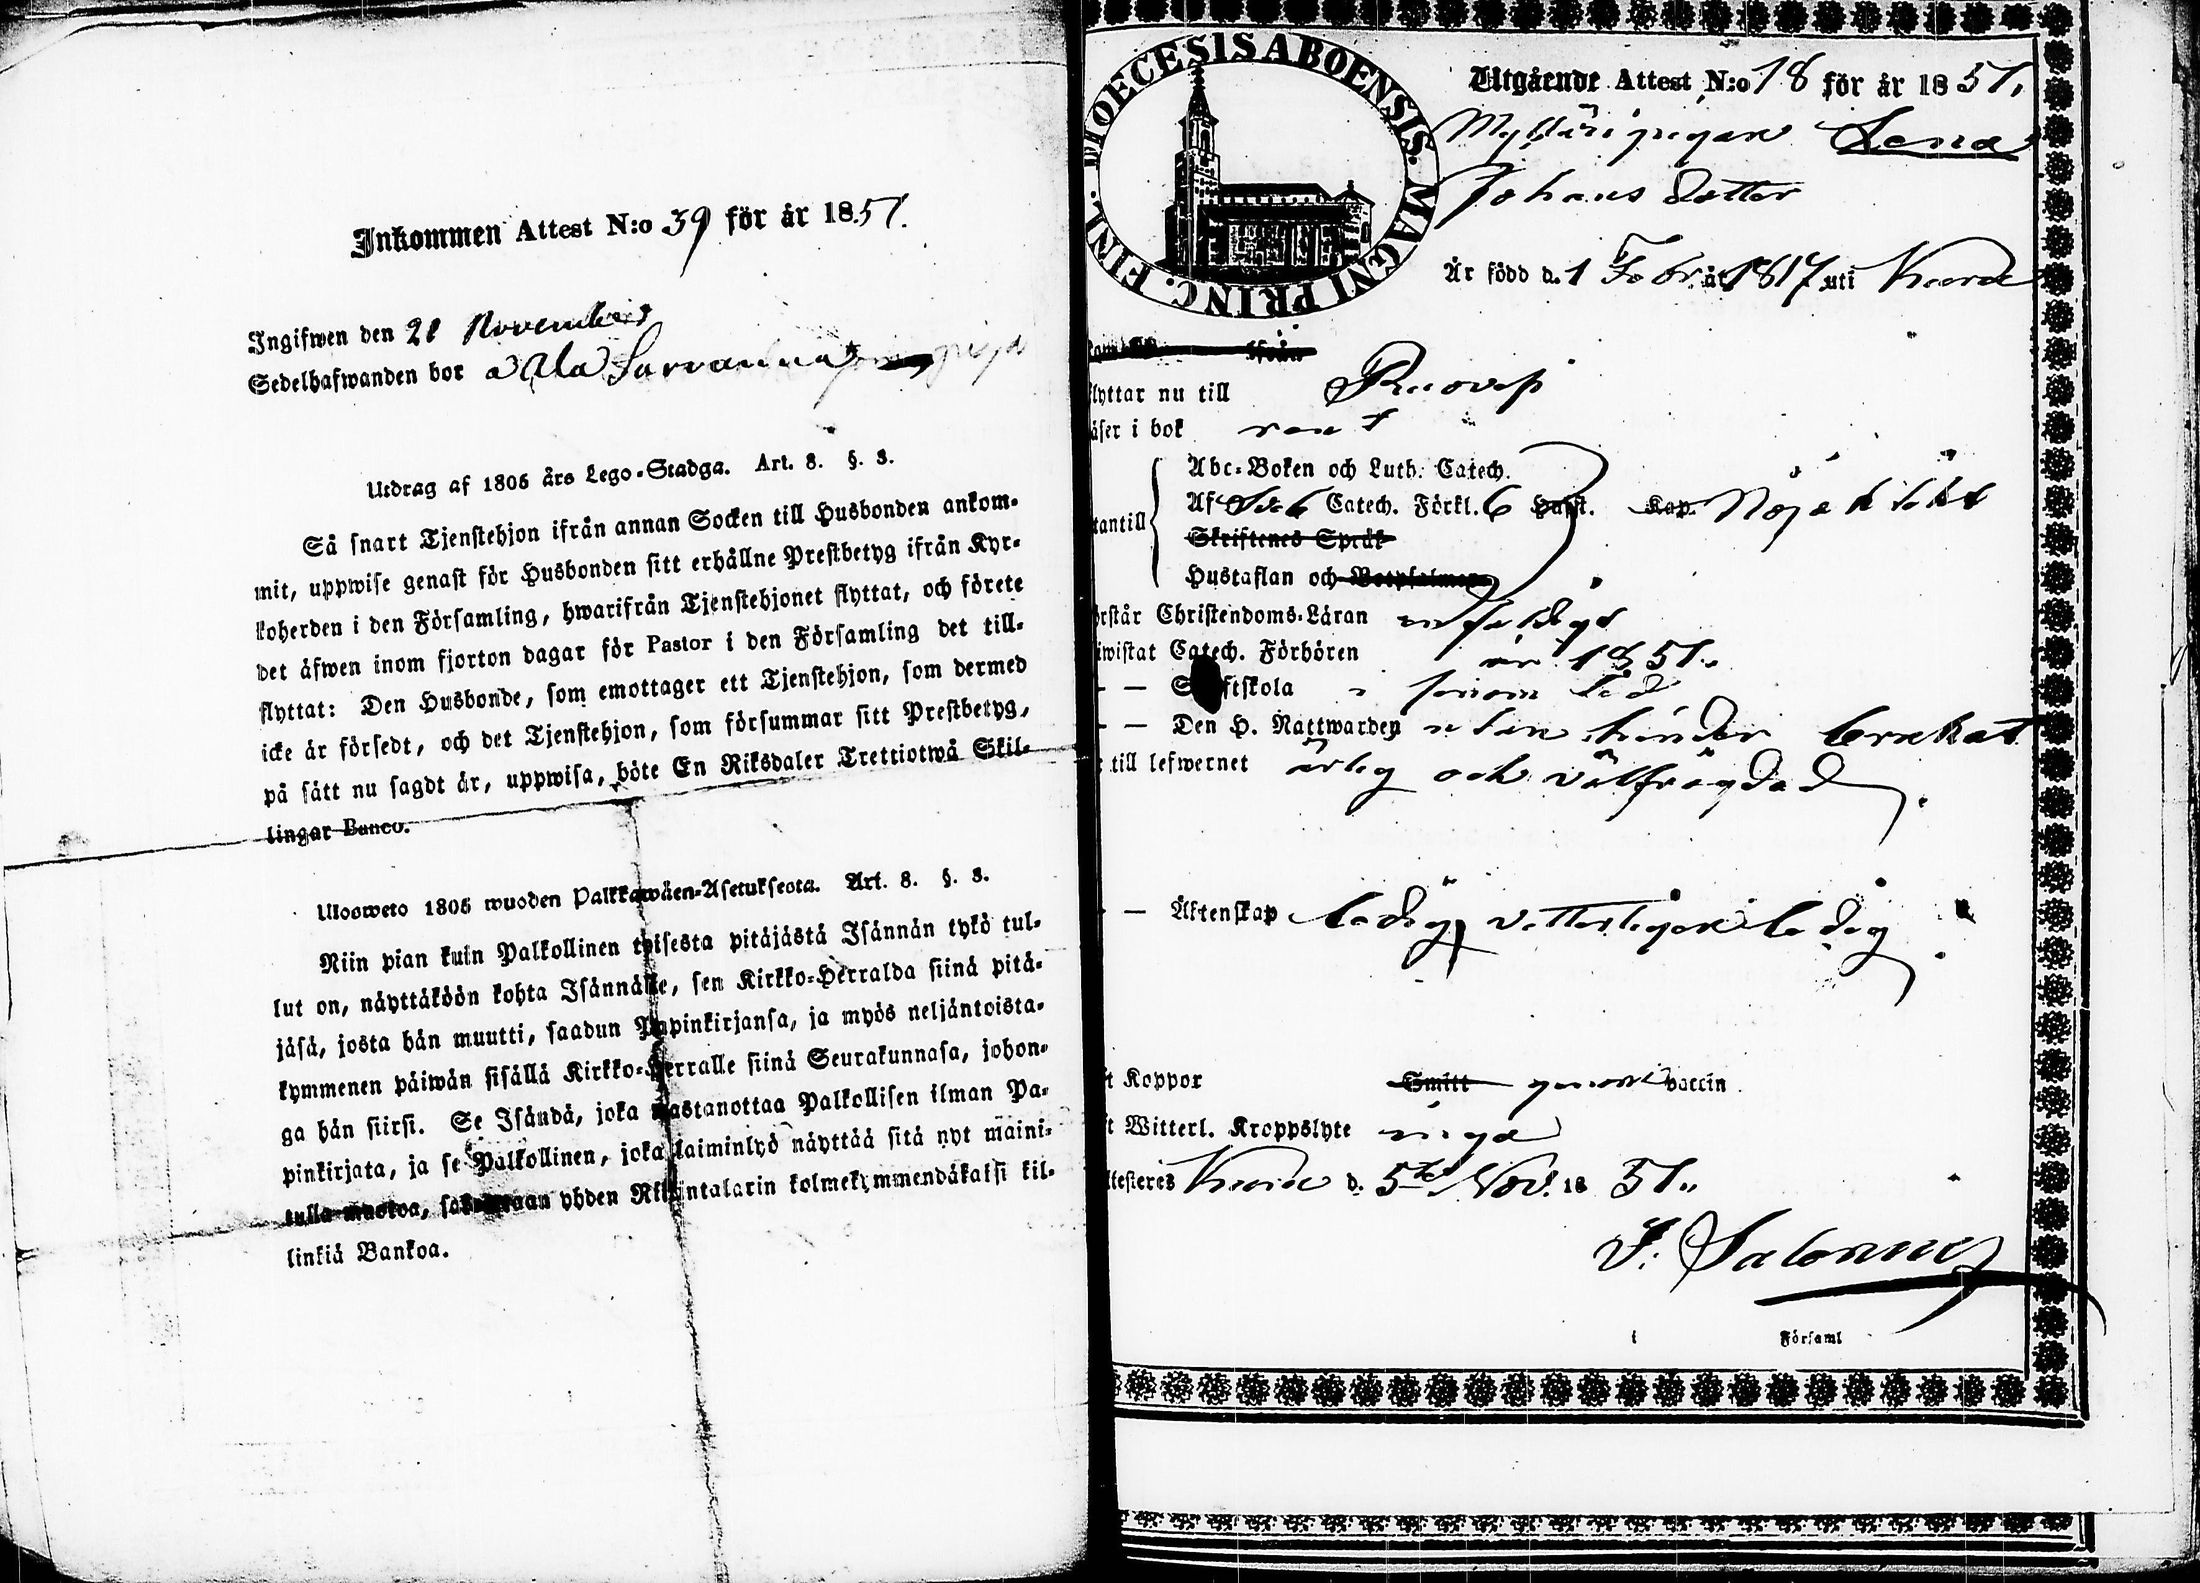 Inkommen Attest N:o 39 för år 1851.
Ingifwen den 21 November
Sedelhafwanden bor å Ala Sarvanna
Utdrag af 1805 års Lego-Stadga. Art. 8. §. 3.
Så snart Tjenstehjon ifrån annan Socken till Husbonden ankom-
mit, uppwise genast för Husbonden sitt erhållne Prestbetyg ifrån Kyr-
koherden i den Församling, hwarifrån Tjenstehjonet flyttat, och förete
det äfwen inom fjorton dagar för Pastor i den Församling det till-
flyttat: Den Husbonde, som emottager ett Tjenstehjon, som dermed
icke är försedt, och det Tjenstehjon, som försummar sitt Prestbetyg,
på sätt nu sagdt är, uppwisa, böte En Riksdaler Trettiotwå Skil-
lingar Banco.
Ulosweto 1805 wuoden Palkkawäen-Asetuksesta. Art. 8. §. 3.
Niin pian kuin Palkollinen toisesta pitäjästä Isännän tykö tul-
lut on, näyttäköön kohta Isännälle, sen Kirkko-Herralda siinä pitä-
jäsä, josta hän muutti, saadun Papinkirjansa, ja myös neljäntoista-
kymmenen päiwän sisällä Kirkko-Herralle siinä Seurakunnasa, johon-
ga hän siirsi. Se Isändä, joka wastanottaa Palkollisen ilman Pa-
pinkirjata, ja se Palkollinen, joka laiminlyö näyttää sitä nyt maini-
tulla muotoa, sakotetaan yhden Riksintalarin kolmekymmendäkaksi kil-
linkiä Bankoa.
DIOECESIS ABOENSIS. MAGNI PRINC. FINL.
Utgående Attest N:o 18 för år 1851.
Mylläri pigan Lena
Johans dotter
Är född d. 1 Febr. år 1817 uti
ifrån
flyttar nu till Ruovesi
läser i bok rent
Abc-Boken och Luth. Catech.
Af Sveb Catech. Förkl. 6 Hufst. Kap. Nöjaktikt
tantill
Skriftenes Språk
Hustaflan och Botpsalmer
förstår Christendoms-Läran enfaldigt
iwistat Catech. Förhören år 1851.
— — Skriftskola i
— — Den H. Nattwarden utan hinder brukat
till lefwernet ärlig och välfrägdad
— — Äktenskap ledig, vetterligen ledig
Koppor Smitt genom vaccin
Witterl. Kroppslyte inga
ttesteres d. 5te Nov. 18 51.
i Församl